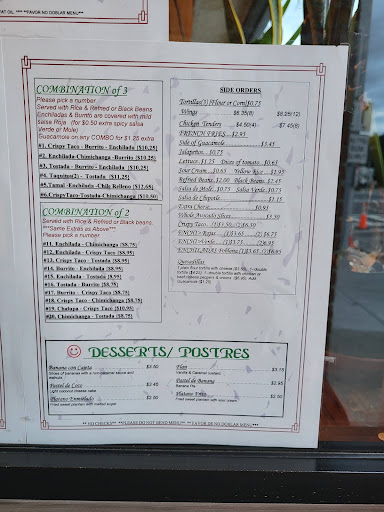 AT OIL. **** **FAVOR NO DOBLAR MENU***
COMBINATION of 3
Please pick a number
Served with Rice & Refried or Black Beans
Enchiladas & Burrito are covered with mild
salsa Roja (for $0.50 extra spicy salsa
Verde or Mole)
Guacamole on any COMBO for $1.25 extra
#1. Crispy Taco - Burrito - Enchilada ($10.25)
#2. Enchilada Chimichanga -Burrito ($10.25)
#3. Tostada - Burrito - Enchilada ($10.25)
#4. Taquitos(2) - Tostada ($11.25)
#5.Tamal -Enchilada -Chile Relleno ($12.65)
#6.CrispyTaco-Tostada-Chimichanga($10.50)
COMBINATION of 2
Served with Rice & Refried or Black beans
**Same Extras as Above**
Please pick a number
#11. Enchilada - Chimichanga ($8.75)
#12. Enchilada - Crispy Taco ($8.25)
#13. Crispy Taco - Tostada ($8.25)
#14. Burrito - Enchilada ($8.75)
#15. Enchilada - Tostada
#16. Tostada - Burrito ($8.75)
#17. Burrito - Crispy Taco ($8.75)
#18. Crispy Taco - Chimichanga ($8.75)
#19. Chalupa - Crispy Taco ($10.95)
#20. Chimichanga - Tostada ($8.75)
SIDE ORDERS
Tortillas(3) Flour or Corn $0.75
Wings $6.35(8) (12)
Chicken Tenders $4.50(4) $7.45(8)
FRENCH FRIES $2.95
Side of Guacamole $5.45
Jalapeños
Lettuce $1.25 Dices of tomato $0.65
Sour Cream $0.65 Yellow Rice
Refried Beans $2.00 Black Beans $2.45
Salsa de Mole $0.75 Salsa Verde $0.75
Salsa de Chipotle $1.15
Extra Chesse $0.95
Whole Avocado Slices $3.50
Crispy Taco
Quesadillas
DESSERTS/ POSTRES
Banana con Cajeta $3.50
Slices of bananas with a rich caramel sauce and
walnuts
Pastel de Coco $3.45
Light coconut cheese cake
Platano Enmielado $2.50
Fried sweet plantain with melted sugar
Flan $3.15
Vanilla & Caramel custard
Pastel de Banana $2.95
Banana Pie
Platano Frito $2.50
Fried sweet plantain with sour cream
** NO CHECKS** **PLEASE DO NOT SEND MENU** ** FAVOR DE NO DOBLAR MENU***